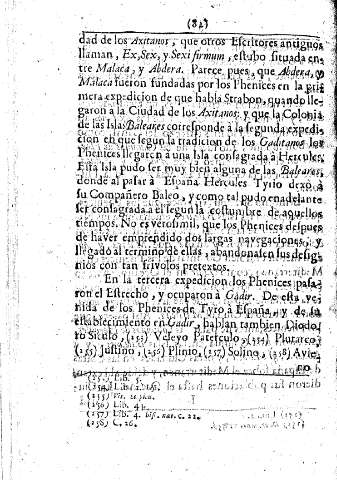 (84)
dad de los Axitanos, que otros Escritores antiguos
llaman, Ex, Sex, y Sexi firmum, estubo situada en-
tre Malaca, y Abdera. Parece pues, que Abdera, y
Malaca fueron fundadas por los Phenices en la pri-
mera expedicion de que habla Strabon, quando lle-
garon a la Ciudad de los Axitanos, y que la Colonia
de las Islas Baleares corresponde à la segunda expedi-
cion en que segun la tradicion de los Gaditanos los
Phenices llegaron a una Isla consagrada à Hercules.
Esta Isla pudo ser muy bien alguna de las Baleares,
donde al pasar à España Hercules Tyrio dexó a
su Compañero Baleo, y como tal pudo en adelante
ser consagrada el segun la costumbre de aquellos
tiempos. No es verosimil, que los Phenices despues
de haver emprendido dos largas navegaciones, y
llegado al termino de ellas, abandonasen sus desig-
nios con tan frivolos pretextos.
En la tercera expedicion los Phenices pasa-
ron el Estrecho, y ocuparon à Gadir. De esta ve-
nida de los Phenices de Tyro à España, y de su
establecimiento en Gadir, hablan tambien Diodo-
ro Siculo, (253) Veleyo Paterculo, (254) Plutarco,
(255) Justino, (256) Plinio, (257) Solino, (258) Avie-
no
(253) Lib. 5.
(254) Lib. 1.
(255)
(256) Lib. 44.
(257) Lib. 4. hist. nat. c. 22.
(258) C. 26.